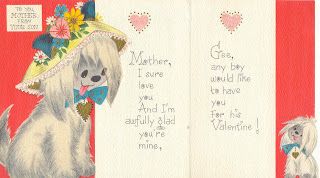 TO YOU,
MOTHER,
FROM
YOUR SON
Mother,
I sure
love
you
And I'm
awfully glad
you're
mine,
Gee,
any boy
would like
to have
you
For his
Valentine!